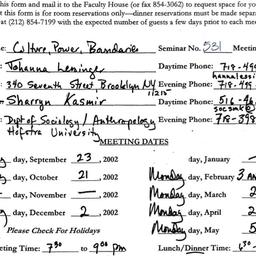 this form and mail it to the Faculty House (or fax 854-3062) to request space for yo
t this form is for room reservations only—dinner reservations must be made separ
at (212) 854-7199 with the expected number of guests a few days prior to each mee
e: Culture, Power, Boundaries Seminar No. 531 Meetin
: Johanna Lessinger Daytime Phone: 718-49
: 340 Seventh Street Brooklyn NY 11215 Evening Phone: 718-499
: Sharryn Kasmir Daytime Phone: 516-46
: Dept of Sociology / Anthropology Evening Phone: 718-398
Hofstra University
MEETING DATES
day, September 23, 2002 day, January —
day, October 21, 2002 Monday, February 3
day, November —, 2002 Monday, March
day, December 2, 2002 Monday, April 2
Please Check For Holidays Monday, May 5
eting Time: 7:30 to 9:00 pm Lunch/Dinner Time: